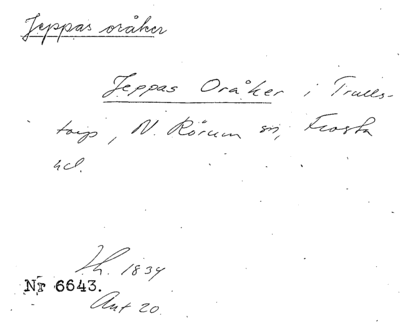 Jeppas oråker
Jeppas Oråker i Trulls-
torp, N. Rörum sn, Frosta
hd.
Jh. 1834
Nr 6643.
Ant 20.